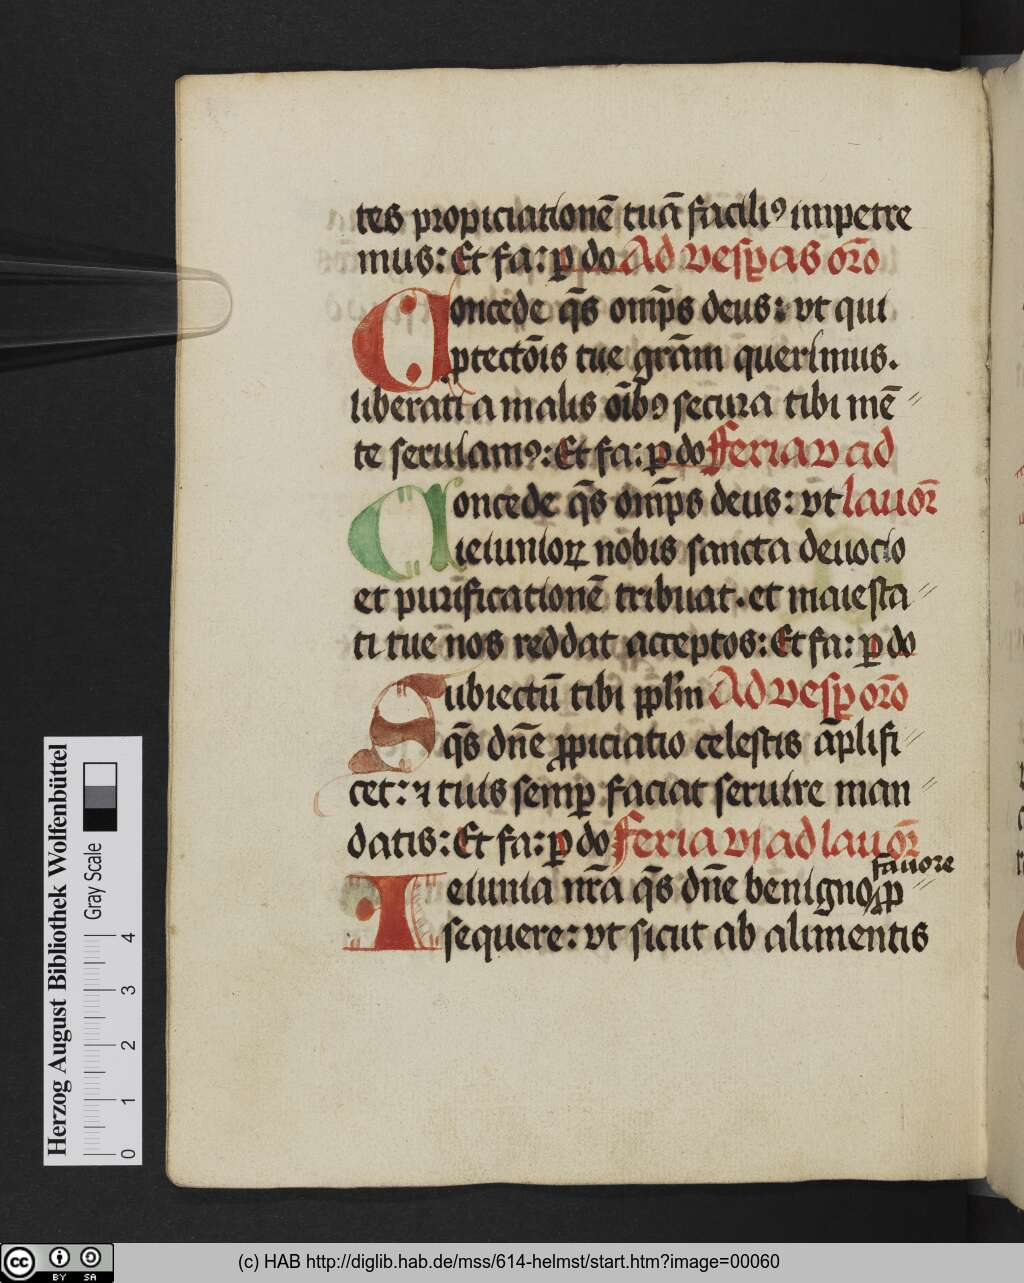 tes propiciationē tuā facili⁹ impetre
mus: Et fa: ꝑ do Ad vesꝑas oŕo
Concede q̄s omp̄s deus: vt qui
ꝓtectōīs tue grām querimus.
liberati a malis oībꝫ secura tibi mē
te seruiam⁹: Et fa: ꝑ do Feria v ad
Concede q̄s omp̄s deus: vt lauoꝝ
ieiunioꝝ nobis sancta deuocio
et purificationē tribuat. et maiesta
ti tue nos reddat acceptos: Et fa: ꝑ do
Subiectū tibi pplm̄ Ad vesꝑ oŕo
q̄s dn̄e ꝓpiciatio celestis āplifi
cet: ⁊ tuis semꝑ faciat seruire man
datis: Et fa: ꝑ do Feria vj ad lauoꝝ
fauore
Ieiunia nr̄a q̄s dn̄e benigno ꝓ
sequere: vt sicut ab alimentis
Herzog August Bibliothek Wolfenbüttel
Gray Scale
0 1 2 3 4
cc BY SA
(c) HAB http://diglib.hab.de/mss/614-helmst/start.htm?image=00060